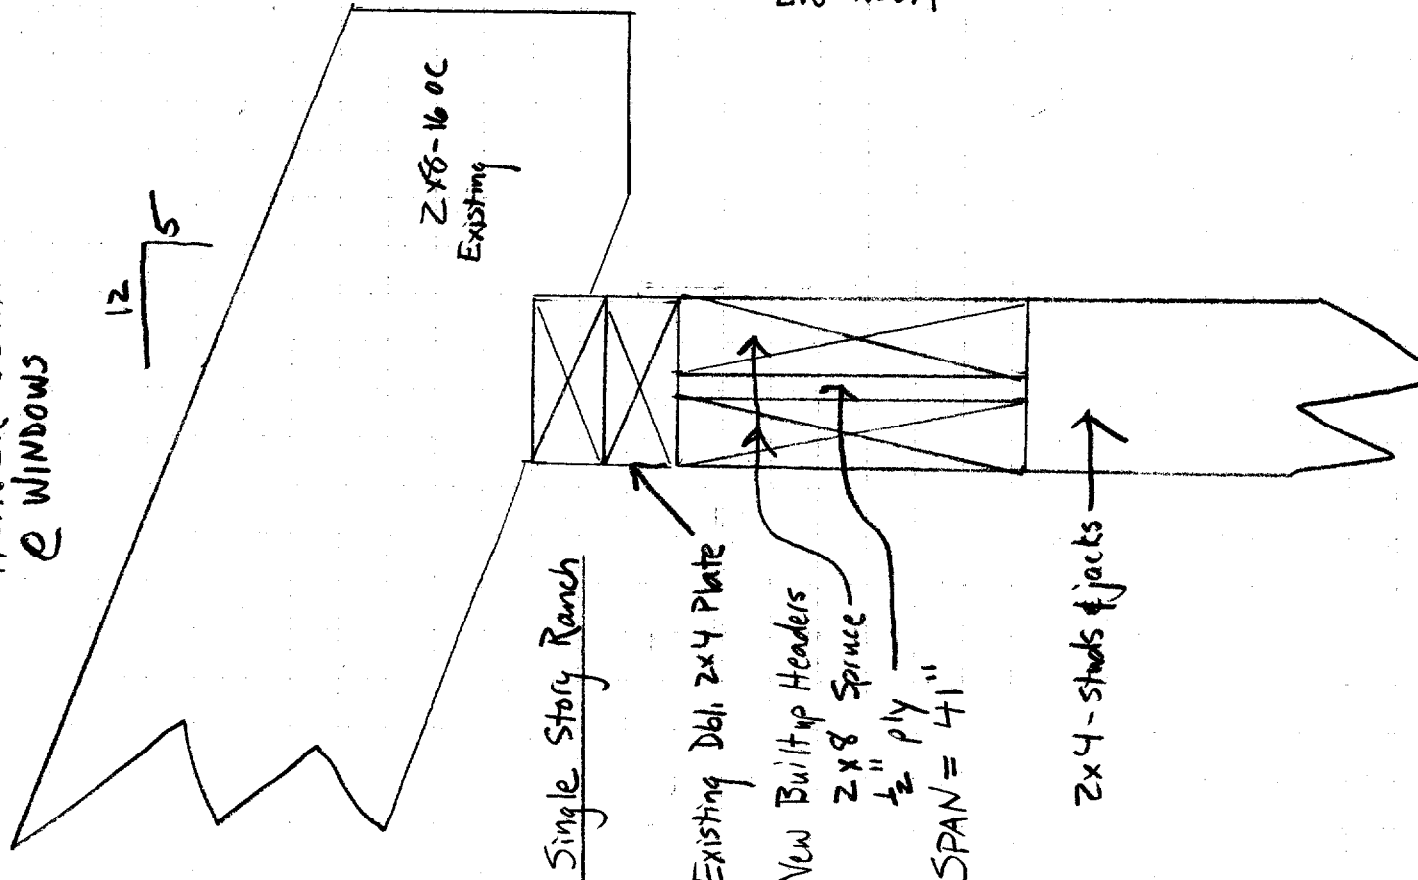 @ WINDOWS
12
5
2x8-16 OC
Existing
Single Story Ranch
Existing Dbl. 2x4 Plate
New Builtup Headers
2x8 Spruce
1/2" Ply
SPAN = 41"
2x4 - studs & jacks